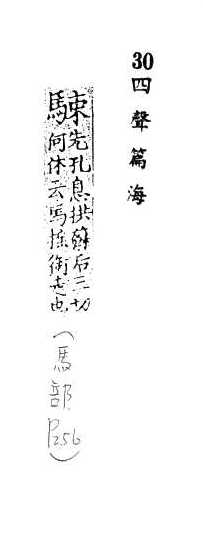 30四聲篇海
駷
先孔息拱蘇后三切
何休云馬搖銜走也
(馬部P256)